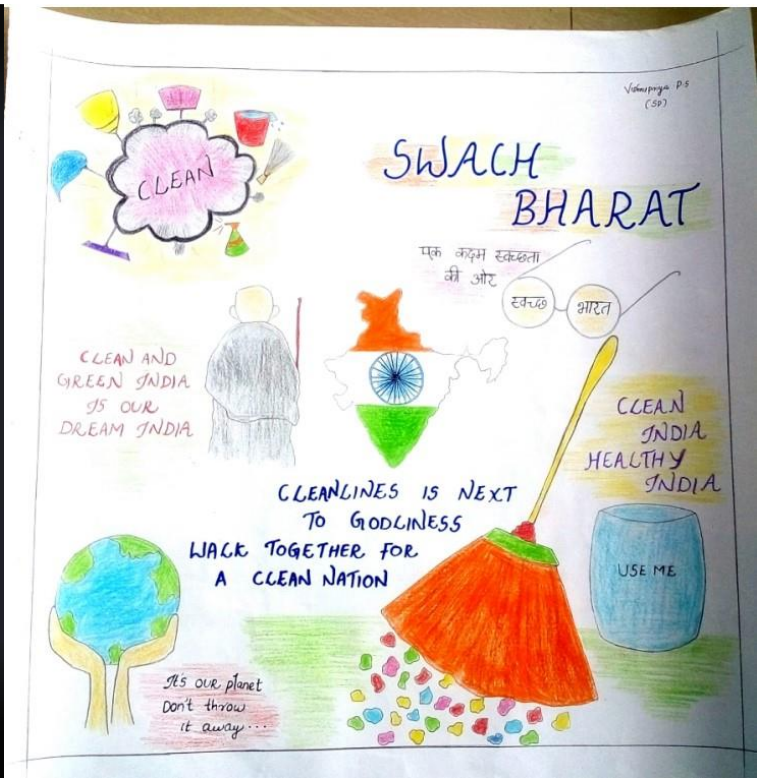 Vishnupriya P.S
(SP)
CLEAN
SWACH
BHARAT
एक कदम स्वच्छता
की ओर
स्वच्छ भारत
CLEAN AND
GREEN INDIA
IS OUR
DREAM INDIA
CLEAN
INDIA
HEALTHY
INDIA
CLEANLINES IS NEXT
TO GODLINESS
WALK TOGETHER FOR
A CLEAN NATION
USE ME
It's OUR planet
Don't throw
it away...